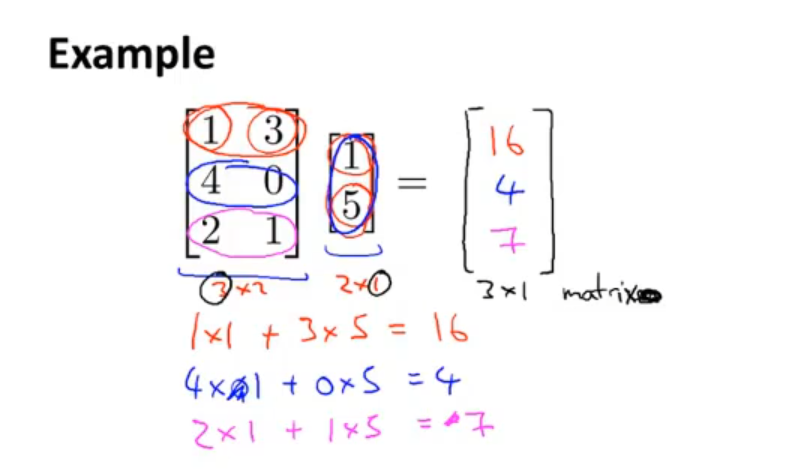 Example
1 3 1 16
4 0 = 4
2 1 5 7
3×2 2×1 3×1 matrix
1×1 + 3×5 = 16
4×1 + 0×5 = 4
2×1 + 1×5 = 7